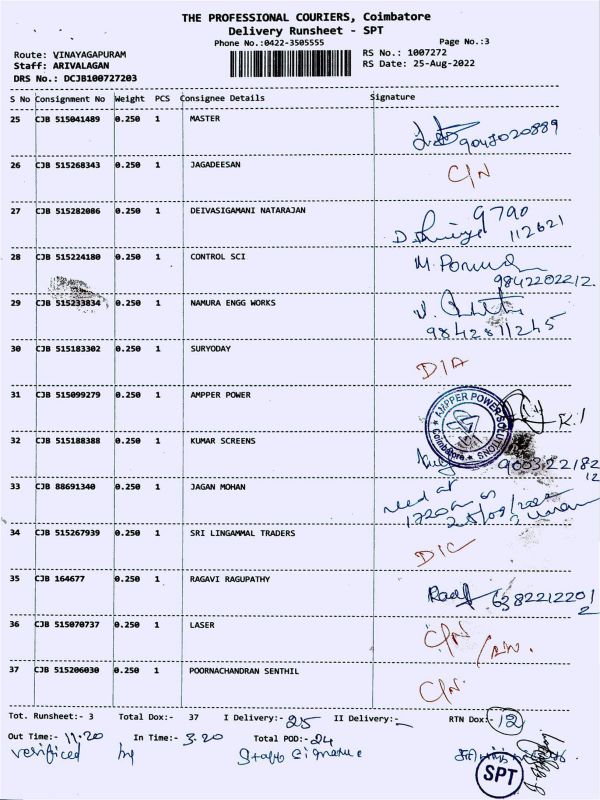 THE PROFESSIONAL COURIERS, Coimbatore
Delivery Runsheet - SPT
Phone No.:0422-3505555 Page No.:3
Route: VINAYAGAPURAM RS No.: 1007272
Staff: ARIVALAGAN RS Date: 25-Aug-2022
DRS No.: DCJB100727203
S No Consignment No Weight PCS Consignee Details Signature
25 CJB 515041489 0.250 1 MASTER
9047020889
26 CJB 515268343 0.250 1 JAGADEESAN C/N
27 CJB 515282086 0.250 1 DEIVASIGAMANI NATARAJAN 9790
112621
28 CJB 515224180 0.250 1 CONTROL SCI
9842202212
29 CJB 515233834 0.250 1 NAMURA ENGG WORKS
9842811245
30 CJB 515183302 0.250 1 SURYODAY
D/A
31 CJB 515099279 0.250 1 AMPPER POWER
AMPPER POWER SOLUTIONS
Coimbatore
32 CJB 515188388 0.250 1 KUMAR SCREENS
900322182
12
33 CJB 88691340 0.250 1 JAGAN MOHAN
34 CJB 515267939 0.250 1 SRI LINGAMMAL TRADERS
D/C
35 CJB 164677 0.250 1 RAGAVI RAGUPATHY
638221220
2
36 CJB 515070737 0.250 1 LASER C/N
37 CJB 515206030 0.250 1 POORNACHANDRAN SENTHIL
C/N.
Tot. Runsheet:- 3 Total Dox:- 37 I Delivery:- 25 II Delivery:- RTN Dox:- 12
Out Time:- 11.20 In Time:- 3.20 Total POD:- 24
verificed by Staff Signature
SPT